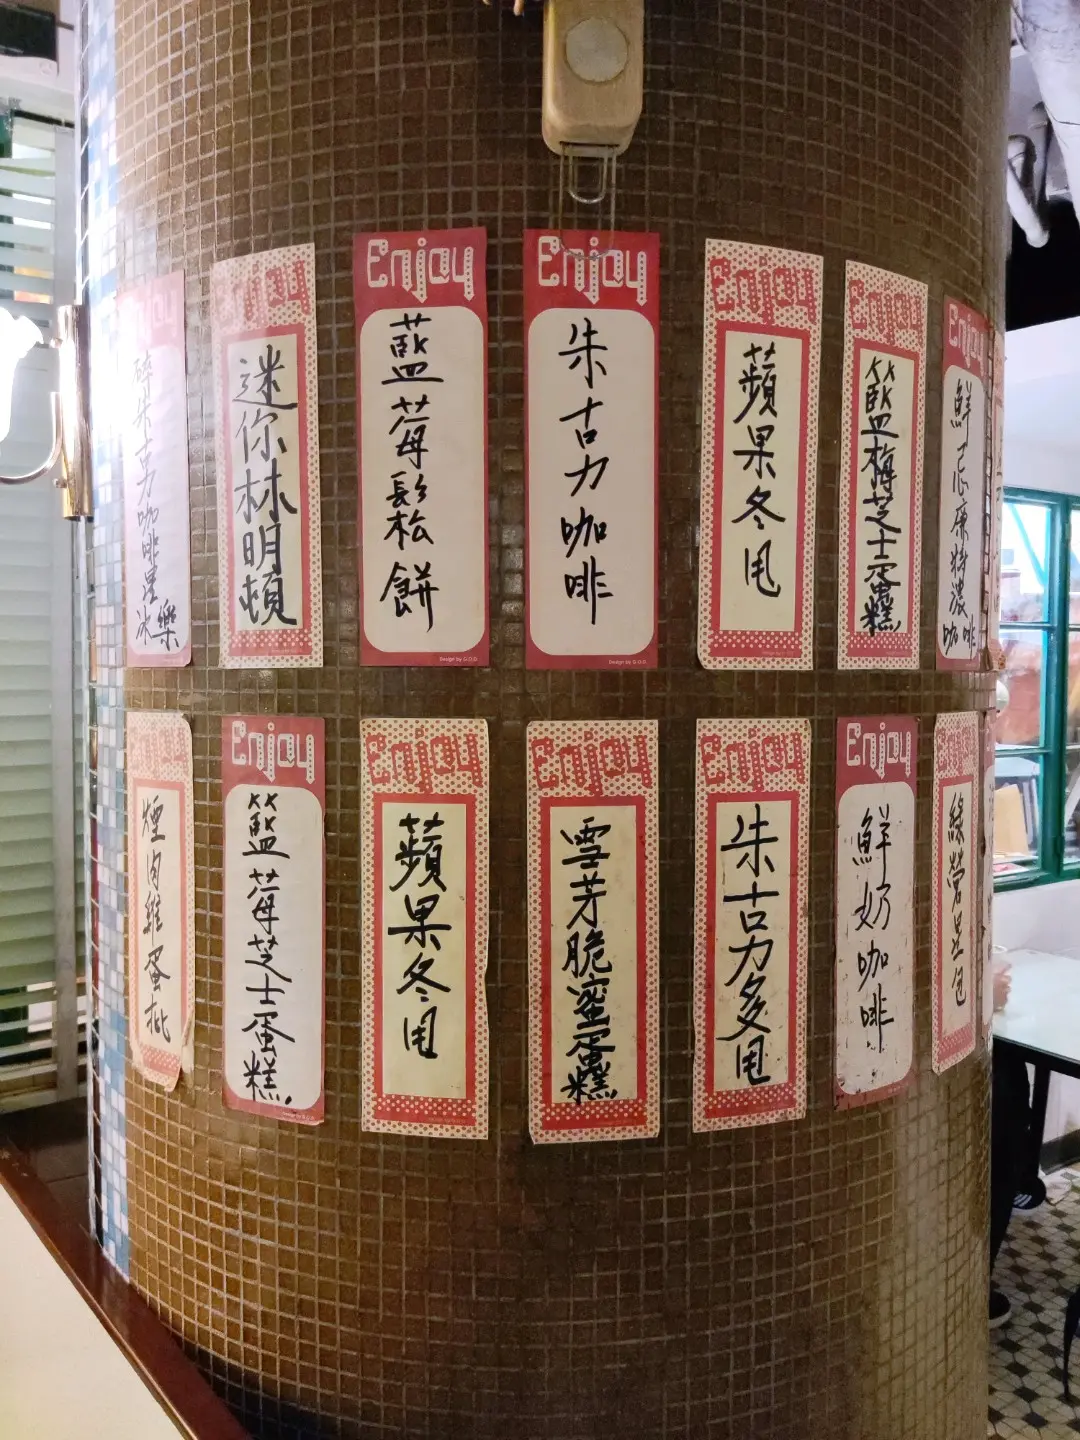 Enjoy
碎朱古力咖啡星冰樂
Enjoy
迷你林明頓
Enjoy
藍莓鬆餅
Design by G.O.D.
Enjoy
朱古力咖啡
Design by G.O.D.
Enjoy
蘋果冬甩
Enjoy
籃梅芝士蛋糕
Enjoy
鮮忌廉特濃咖啡
Enjoy
煙肉雞蛋批
Enjoy
籃莓芝士蛋糕
Enjoy
蘋果冬甩
Enjoy
雪芳脆蜜蛋糕
Enjoy
朱古力多甩
Enjoy
鮮奶咖啡
Enjoy